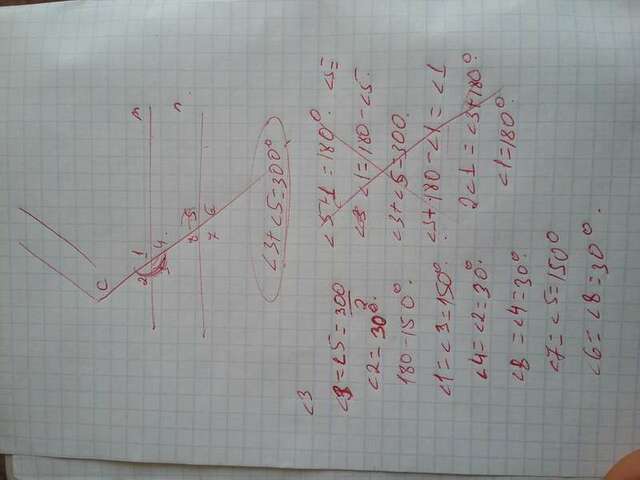 ∠3
∠3 = ∠5 = 300/2
∠2 = 30°.
180 - 150°.
∠1 = ∠3 = 150°.
∠4 = ∠2 = 30°.
∠8 = ∠4 = 30°.
∠7 = ∠5 = 150°
∠6 = ∠8 = 30°.
C
m
2 1
3 4.
n.
8 5
7 6
∠3 + ∠5 = 300°
∠1 = 180°. ∠5 =
∠1 = 180 - ∠5.
∠3 + ∠5 = 300.
∠5 + 180 - ∠1 = ∠1
2∠1 = ∠3 + 180°.
∠1 = 180°.